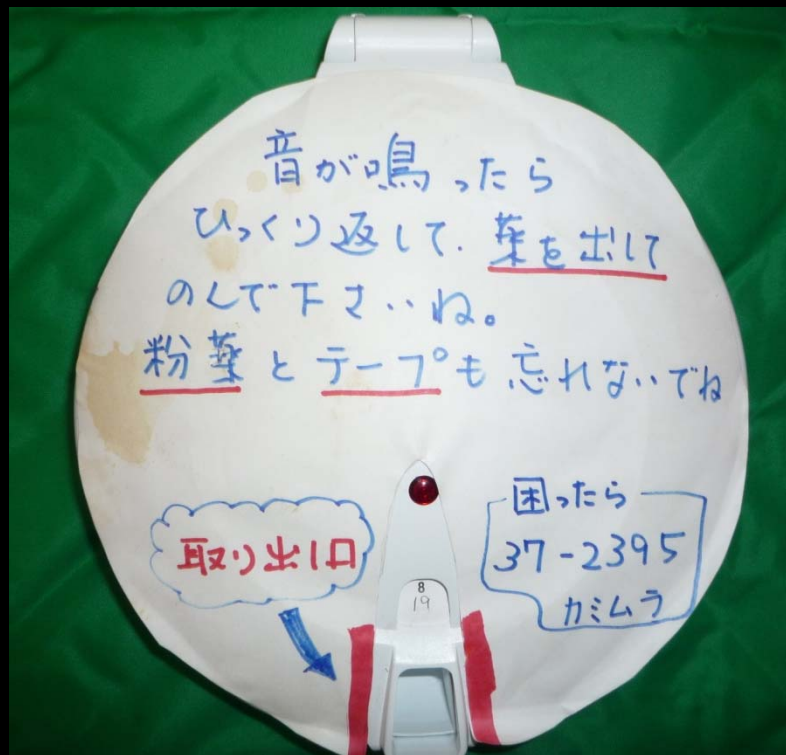 音が鳴ったら
ひっくり返して、薬を出して
のんで下さいね。
粉薬とテープも忘れないでね
取り出し口
困ったら
37-2395
カミムラ
8
19